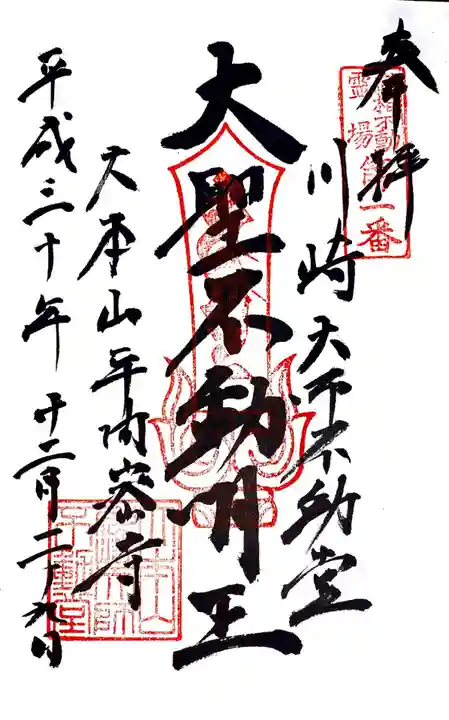 奉拝
武相不動
霊場第一番
川崎大師不動堂
大聖不動明王
大本山平間寺
平成三十年十二月二十九日